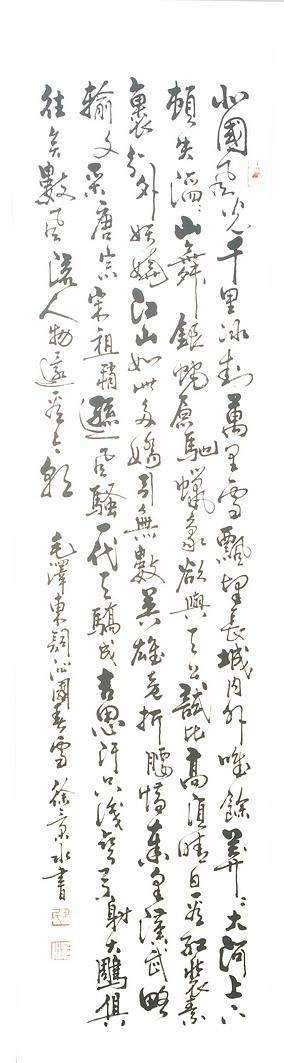 北國風光千里冰封萬里雪飄望長城内外唯餘莽莽大河上下
頓失滔滔山舞銀蛇原馳蠟象欲與天公試比高須晴日看紅裝素
裹分外妖嬈江山如此多嬌引無數英雄競折腰惜秦皇漢武略
輸文采唐宗宋祖稍遜風騷一代天驕成吉思汗只識彎弓射大鵰俱
往矣數風流人物還看今朝 毛澤東詞沁園春雪 徐 書